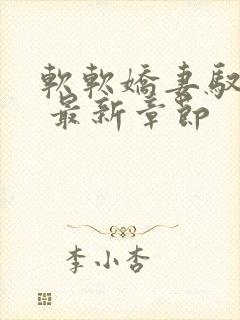 軟軟嬌妻馭
最新章節
李小杏